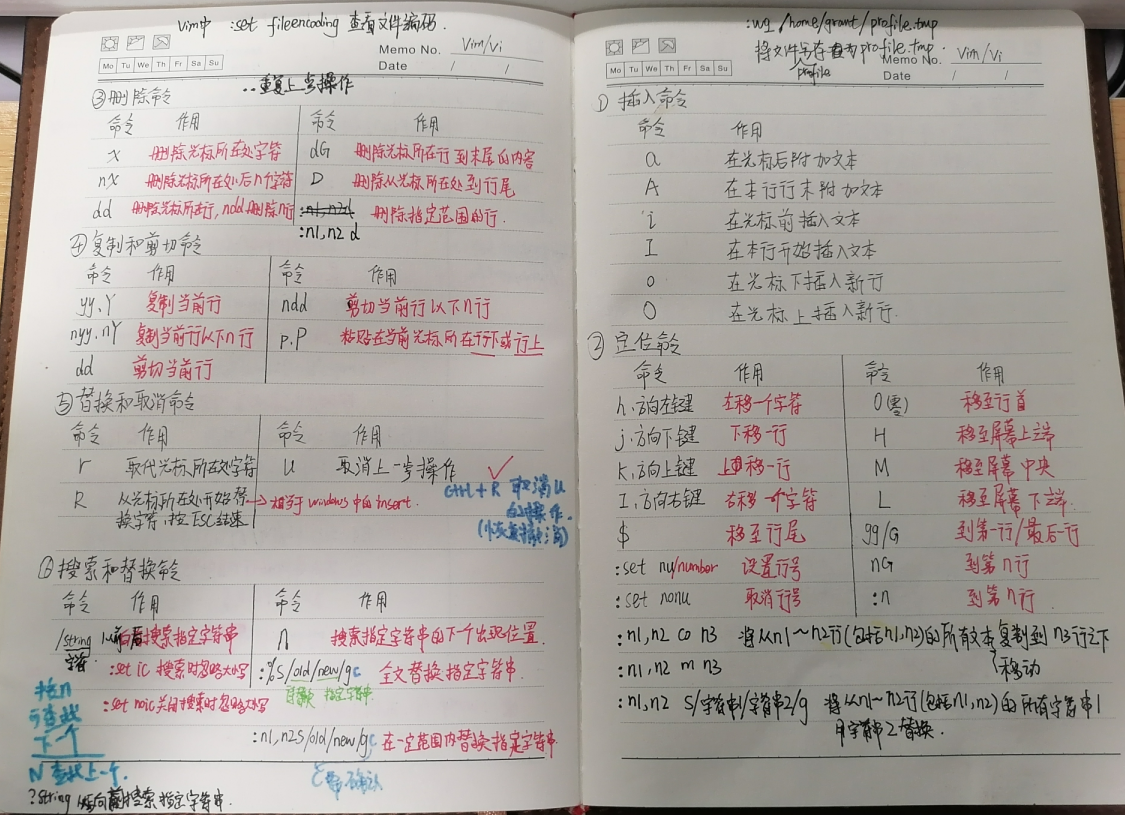 Vim中 :set fileencoding 查看文件编码.
Memo No. Vim/Vi
Mo Tu We Th Fr Sa Su
Date / /
③删除命令 ..重复上一步操作
命令 作用 命令 作用
x 删除光标所在处字符 dG 删除光标所在行到末尾的内容
nx 删除光标所在处后n个字符 D 删除从光标所在处到行尾
dd 删除光标所在行,ndd删除n行 :n1,n2d 删除指定范围的行.
:n1,n2 d
④复制和剪切命令
命令 作用 命令 作用
yy、Y 复制当前行 ndd 剪切当前行以下n行
nyy、nY 复制当前行以下n行 p、P 粘贴在当前光标所在行下或行上
dd 剪切当前行
⑤替换和取消命令
命令 作用 命令 作用
r 取代光标所在处字符 u 取消上一步操作
R 从光标所在处开始替换字符,按ESC结束 → 相当于windows中的insert.
ctrl+R 取消u
的操作.
⑥搜索和替换命令
命令 作用 命令 作用
/string 向后搜索指定字符串 n 搜索指定字符串的下个出现位置.
字符.
:set ic 搜索时忽略大小写 :%s/old/new/gc 全文替换指定字符串
替换 指定字符串
:set noic关闭搜索时忽略大小写
:n1,n2s/old/new/gc 在一定范围内替换指定字符串.
按n
可查找
下一个
N 查找上一个.
?string 向前搜索指定字符串.
:wq /home/grant/profile.tmp
将文件另存为profile.tmp.
profile
Memo No. Vim/Vi
Mo Tu We Th Fr Sa Su
Date / /
① 插入命令
命令 作用
a 在光标后附加文本
A 在本行行末附加文本
i 在光标前插入文本
I 在本行开始插入文本
o 在光标下插入新行
O 在光标上插入新行.
② 定位命令
命令 作用 命令 作用
h、方向左键 左移一个字符 0(零) 移至行首
j、方向下键 下移一行 H 移至屏幕上端
k、方向上键 上移一行 M 移至屏幕中央
I、方向右键 右移一个字符 L 移至屏幕下端.
$ 移至行尾 gg/G 到第一行/最后一行
:set nu/number 设置行号 nG 到第n行
:set nonu 取消行号 :n 到第n行.
:n1,n2 co n3 将从n1~n2行(包括n1,n2)的所有文本复制到n3行之下
:n1,n2 m n3 移动
:n1,n2 S/字符串1/字符串2/g 将从n1~n2行(包括n1,n2)的所有字符串1
用字符串2替换.